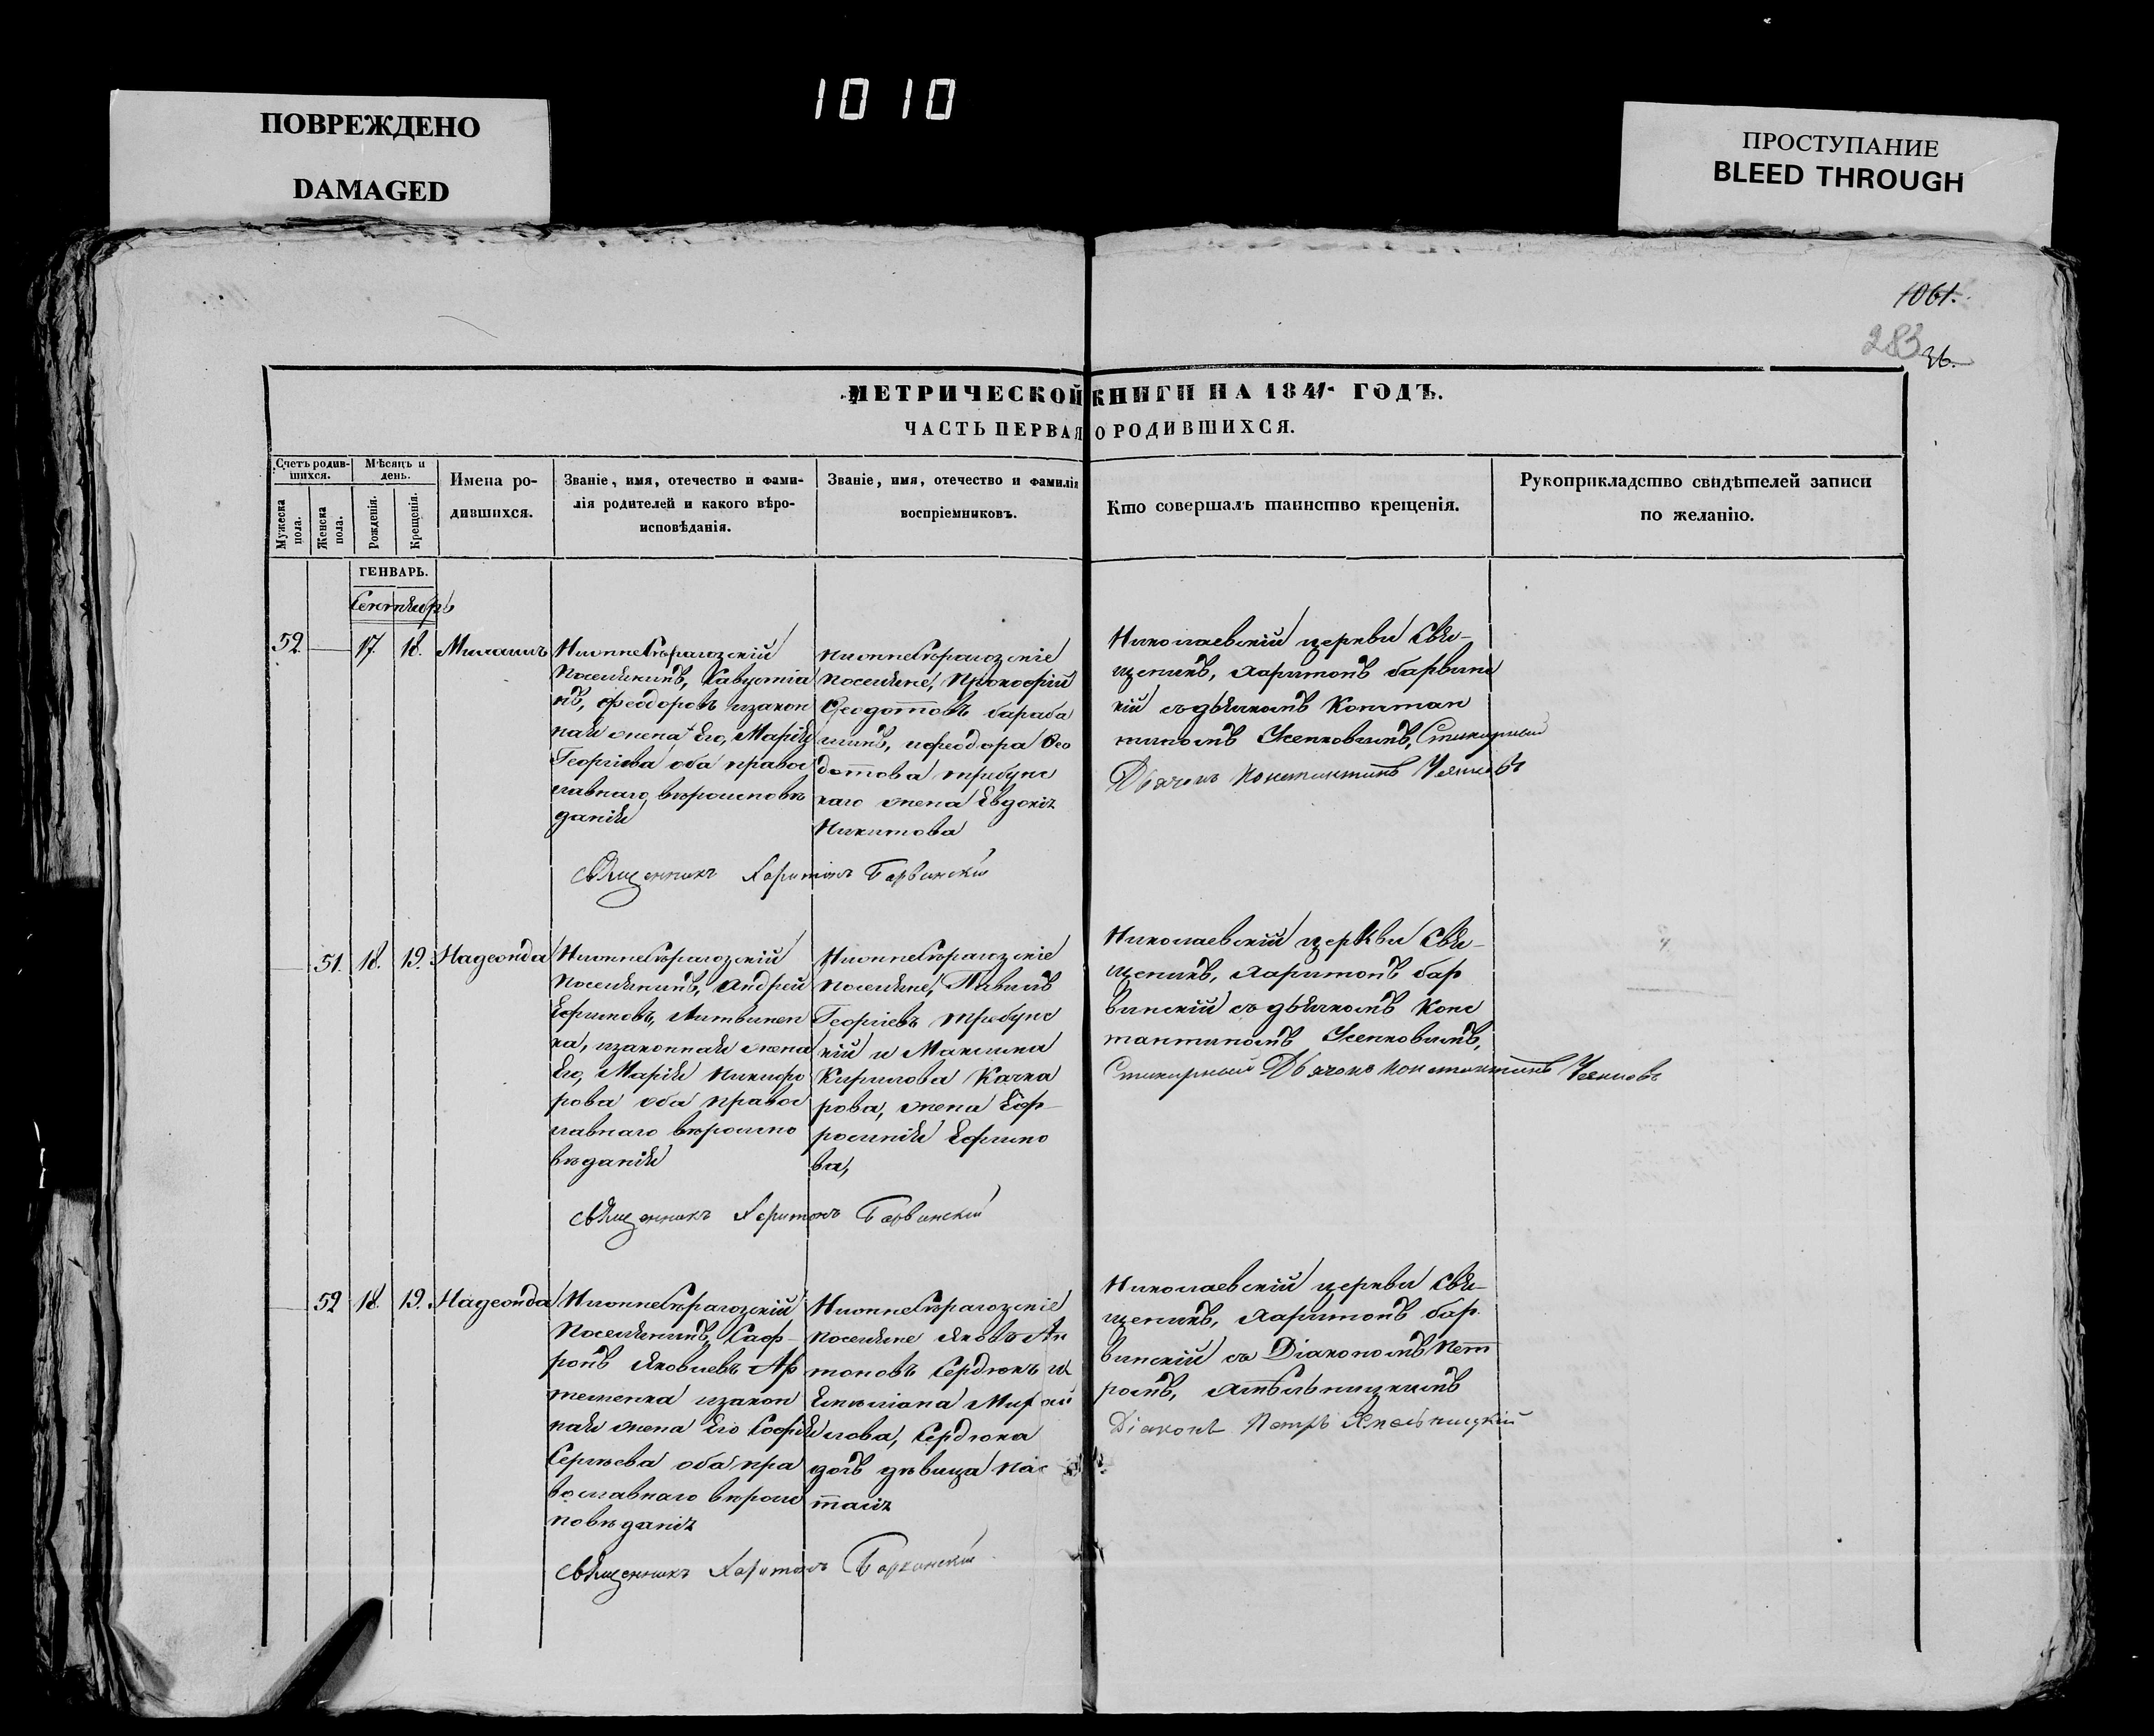 1010
ПОВРЕЖДЕНО
DAMAGED
ПРОСТУПАНИЕ
BLEED THROUGH
1061.
283
36.
МЕТРИЧЕСКОЙ КНИГИ НА 1841 ГОДЪ.
ЧАСТЬ ПЕРВАЯ О РОДИВШИХСЯ.
Счетъ родив-
шихся.
Мужеска
пола.
Женска
пола.
Мѣсяцъ и
день.
Рожденія.
Крещенія.
Имена ро-
дившихся.
Званіе, имя, отечество и фами-
лія родителей и какого вѣро-
исповѣданія.
Званіе, имя, отечество и фамилія
воспріемниковъ.
Кто совершалъ таинство крещенія.
Рукоприкладство свидѣтелей записи
по желанію.
ГЕНВАРЬ.
Сентябрь
52
17.
18.
Михаилъ
Нижнесѣрагозскій
поселянинъ,
нъ, Феодоровъ изакон
ная жена Его, Марія
Георгіева оба правос
лавнаго вѣроисповѣ
данія
Нижнесѣрагозскіе
поселяне, Прокофій
Феодотовъ бараба
шинъ, иФеодора Фео
дотова трибунс
каго жена Евдокія
Никитова
Николаевскій церкви Свя-
щеникъ, Харитонъ барвинс
кій съдьячкомъ Констан
тиномъ Усенковымъ, Стихарный
Дьячокъ Константинъ
Священникъ Харитонъ Барвинскій
51.
18.
19.
Надежда
Нижнесѣрагозскій
поселянинъ, Андрей
Ефимовъ, Литвинен
ка, изаконная жена
Его, Марія Никифо
рова оба правос
лавнаго вѣроиспо
вѣданія
Нижнесѣрагозскіе
поселяне, Павелъ
Георгіевъ трибунс
кій и Максима
Кирилова Качка
рова, жена Еф-
росинія Ефимо
ва,
Николаевскій церкви Свя-
щеникъ, Харитонъ бар
винскій съдьячкомъ Конс
тантиномъ Усенковымъ,
Стихарный Дьячокъ Константинъ
Священникъ Харитонъ Барвинскій
52
18.
19.
Надежда
Нижнесѣрагозскій
поселянинъ, Саф-
ронъ Яковлевъ Ар
теменка изакон
ная жена Его Софія
Сергѣева оба пра
вославнаго вѣроис
повѣданія
Нижнесѣрагозскіе
поселяне Яковъ Ан
тоновъ Сердюкъ и
Емиліана
лова, Сердюка
дочь дѣвица Нас
тасія
Николаевскій церкви Свя-
щеникъ, Харитонъ бар
винскій съ Діакономъ Пет
ромъ,
Діаконъ Петръ
Священникъ Харитонъ Барвинскій